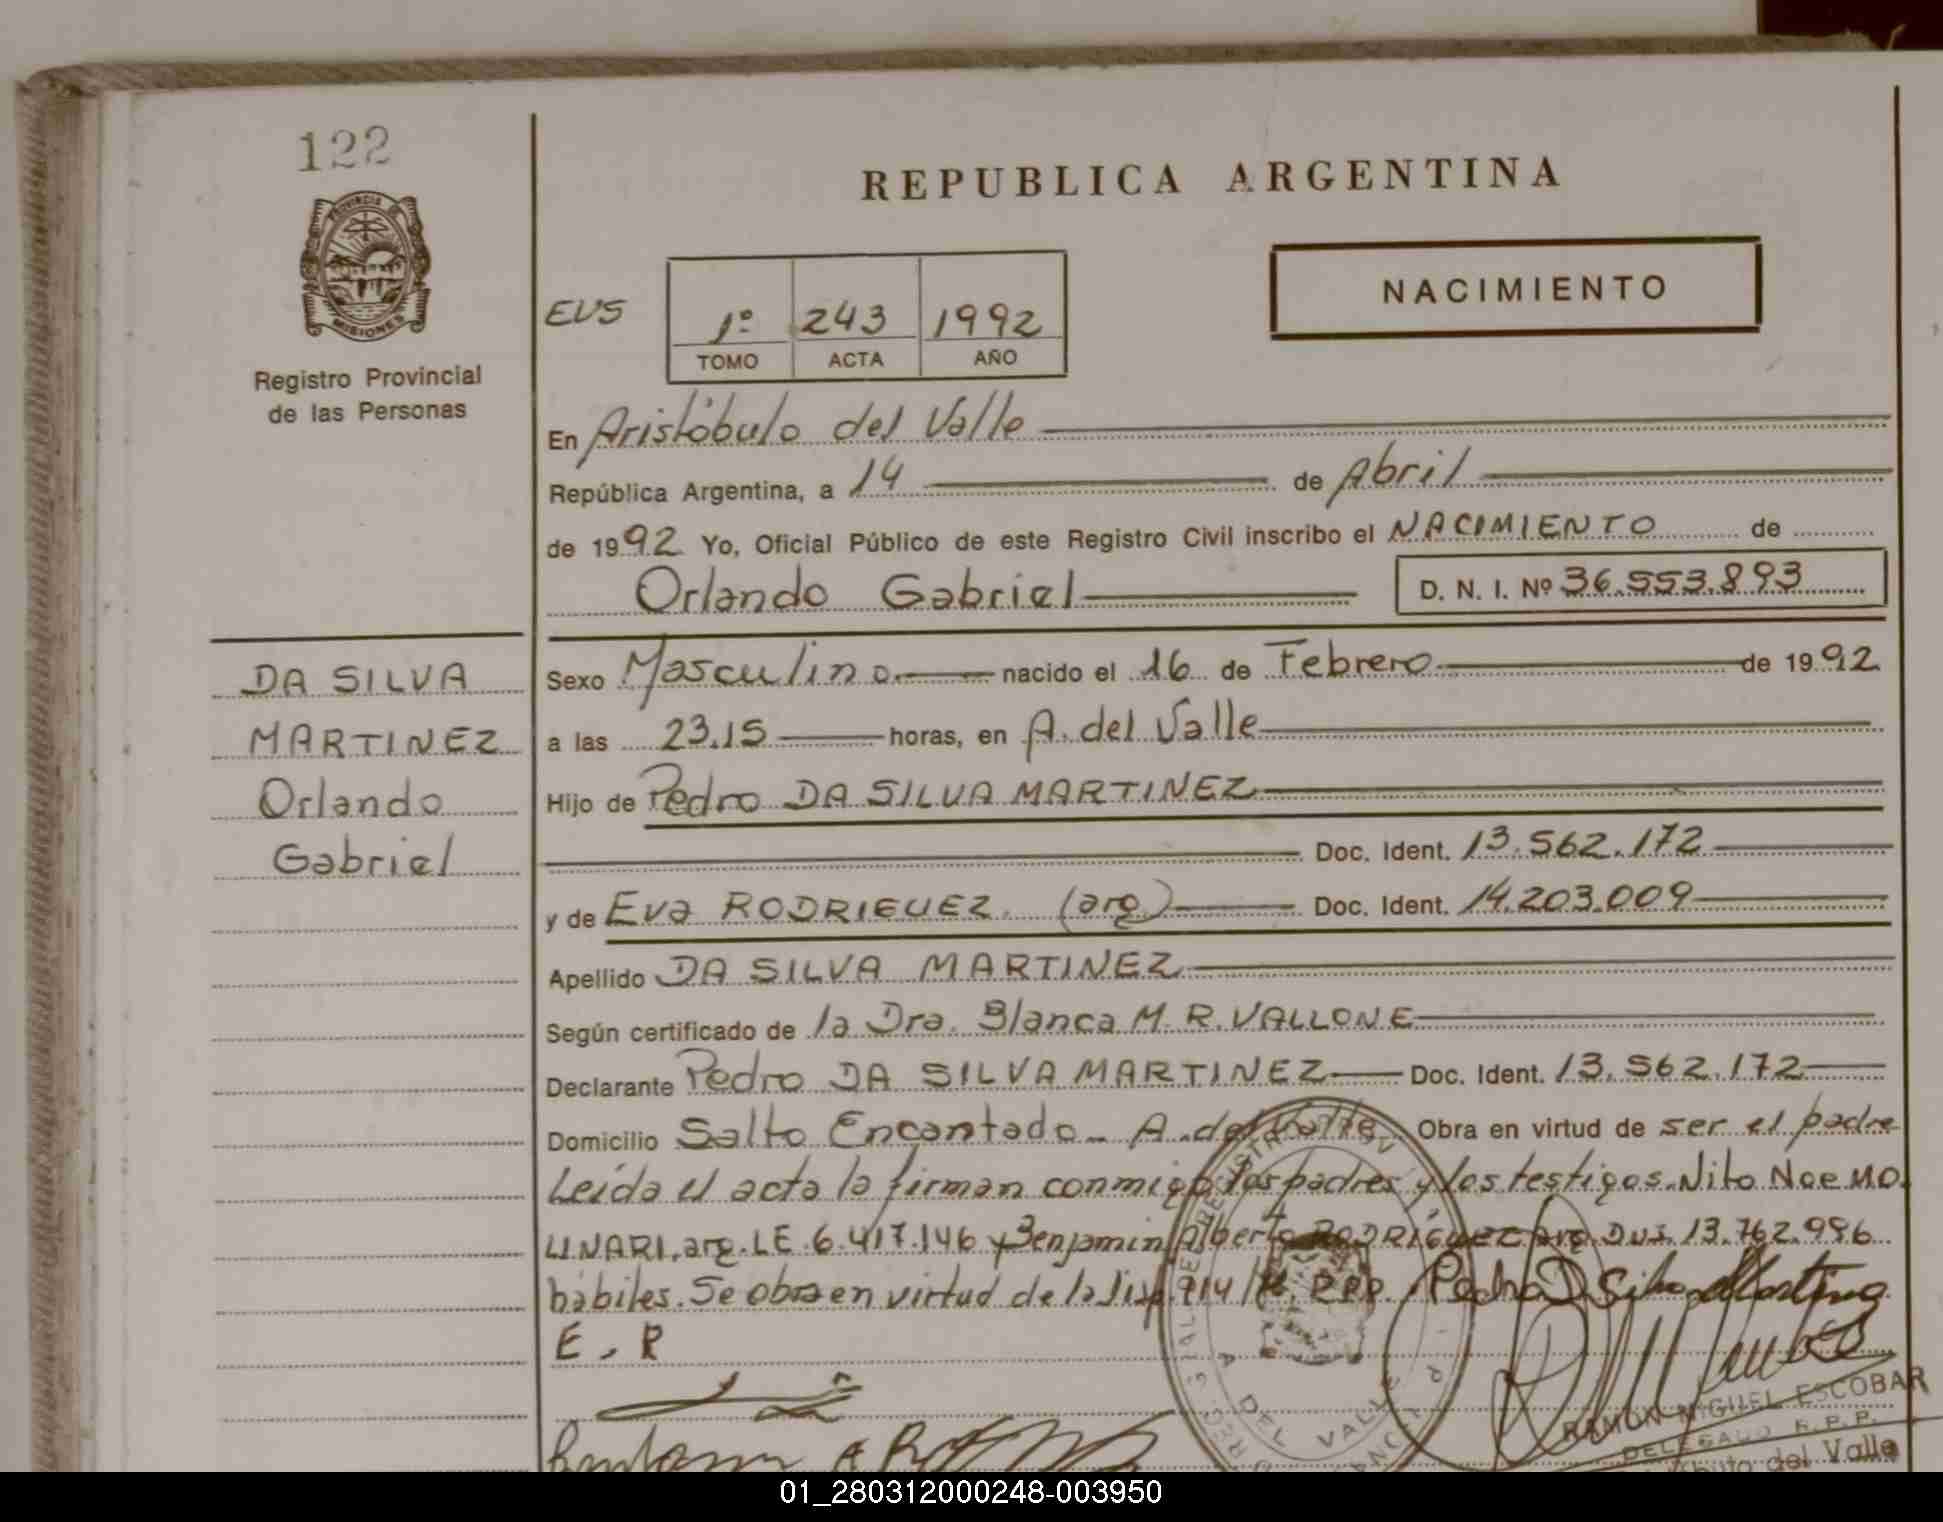 122
PROVINCIA DE
MISIONES
Registro Provincial
de las Personas
REPUBLICA ARGENTINA
NACIMIENTO
EVS
1º 243 1992
TOMO ACTA AÑO
En Aristóbulo del Valle
República Argentina, a 14 de Abril
de 1992 Yo, Oficial Público de este Registro Civil inscribo el NACIMIENTO de
Orlando Gabriel D. N. I. Nº 36.553.893
DA SILVA
MARTINEZ
Orlando
Gabriel
Sexo Masculino nacido el 16 de Febrero de 1992
a las 23.15 horas, en A. del Valle
Hijo de Pedro DA SILVA MARTINEZ
Doc. Ident. 13.562.172
y de Eva RODRIGUEZ (arg) Doc. Ident. 14.203.009
Apellido DA SILVA MARTINEZ
Según certificado de la Dra. Blanca M. R. VALLONE
Declarante Pedro DA SILVA MARTINEZ Doc. Ident. 13.562.172
Domicilio Salto Encantado - A. del Valle Obra en virtud de ser el padre
Leída el acta la firman conmigo los padres y los testigos. Nito Noe MO
LINARI, arg. LE. 6.417.146 y Benjamin Alberto RODRÍGUEZ arg. DNI. 13.762.996
hábiles. Se obra en virtud de la Disp. 914/ R.P.P. Pedro D Silva Martinez
E. R
DEL VALLE
RAMON MIGUEL ESCOBAR
DELEGADO R.P.P.
del Valle
01_280312000248-003950